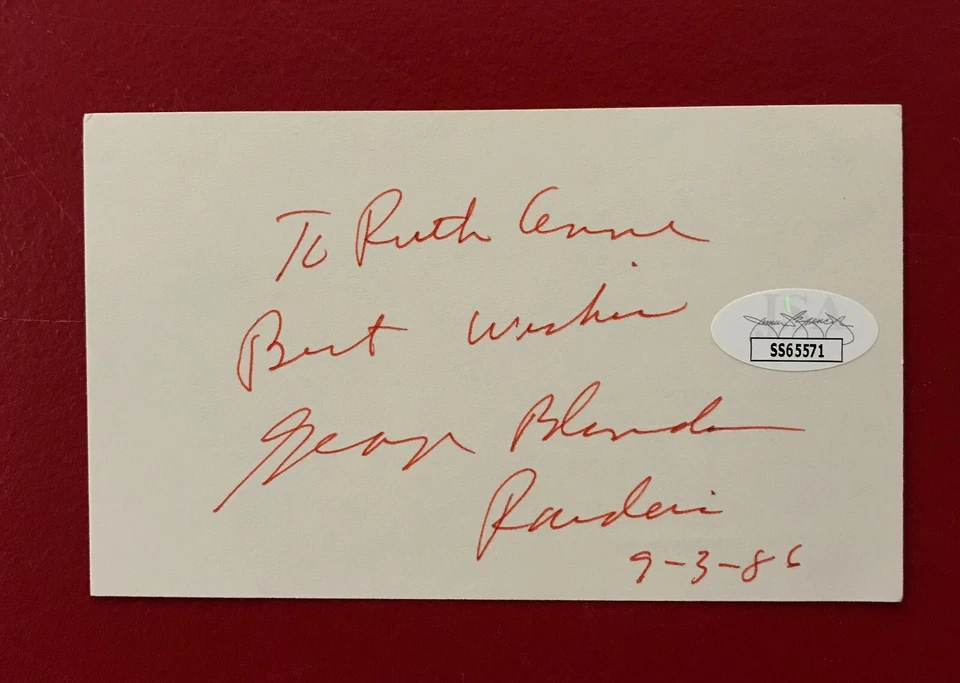 To Ruth Anne
Best Wishes
George Blanda
Raiders
9-3-86
JSA
SS65571